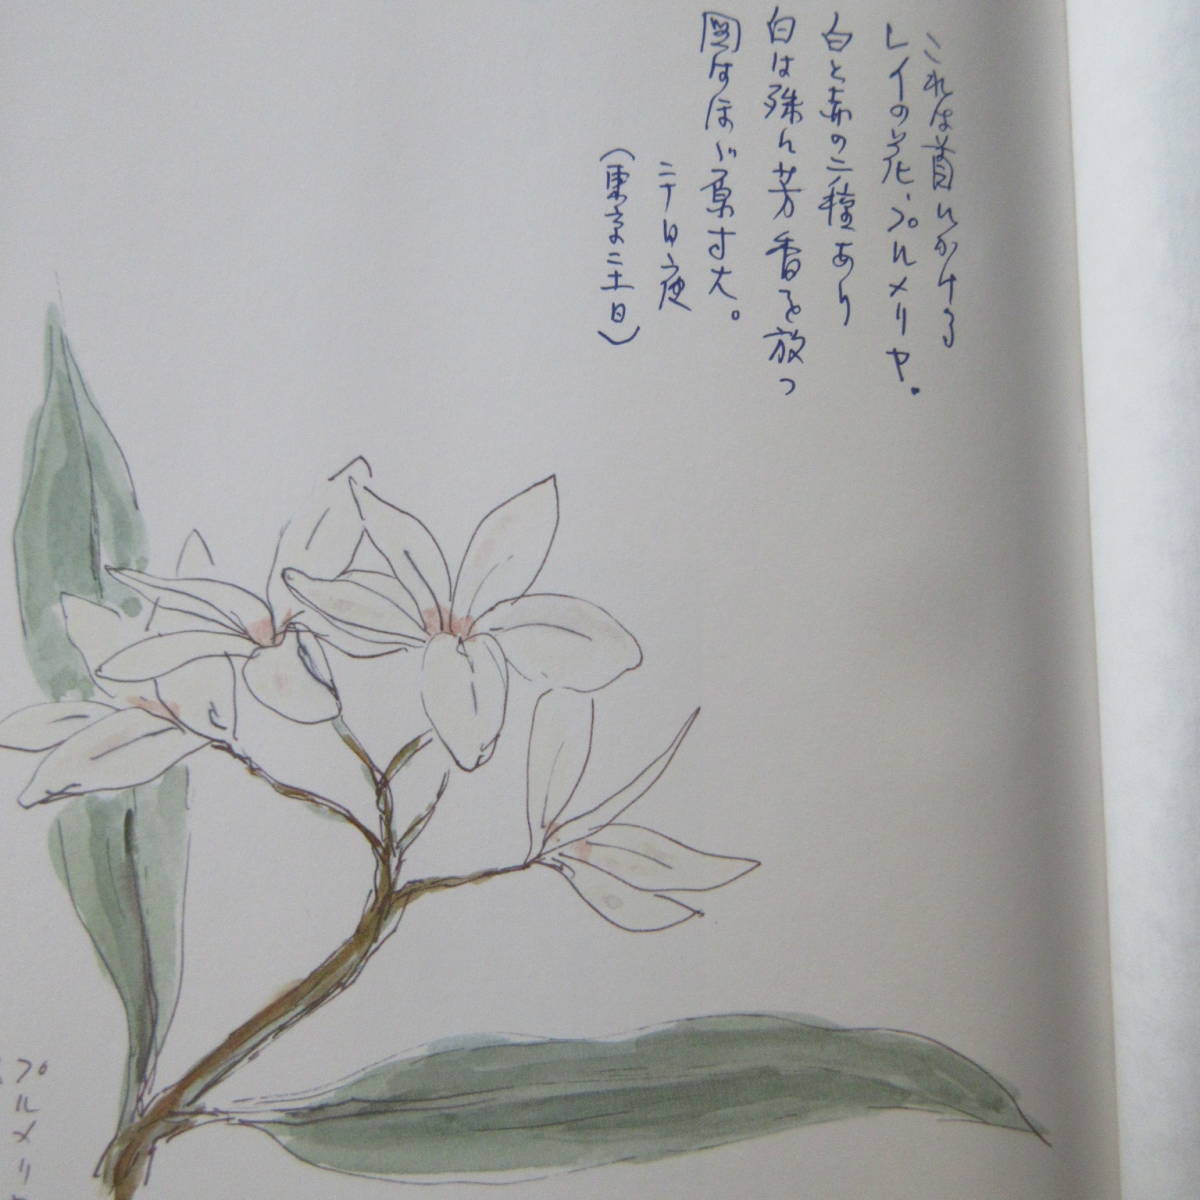 これは首にかける
レイの花、プルメリヤ。
白と赤の二種あり
白は殊に芳香を放つ
図はほゞ原寸大。
二十日夜
(東京二土日)
プルメリヤ